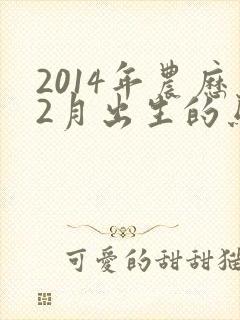 2014年農歷
2月出生的
可愛的甜甜貓